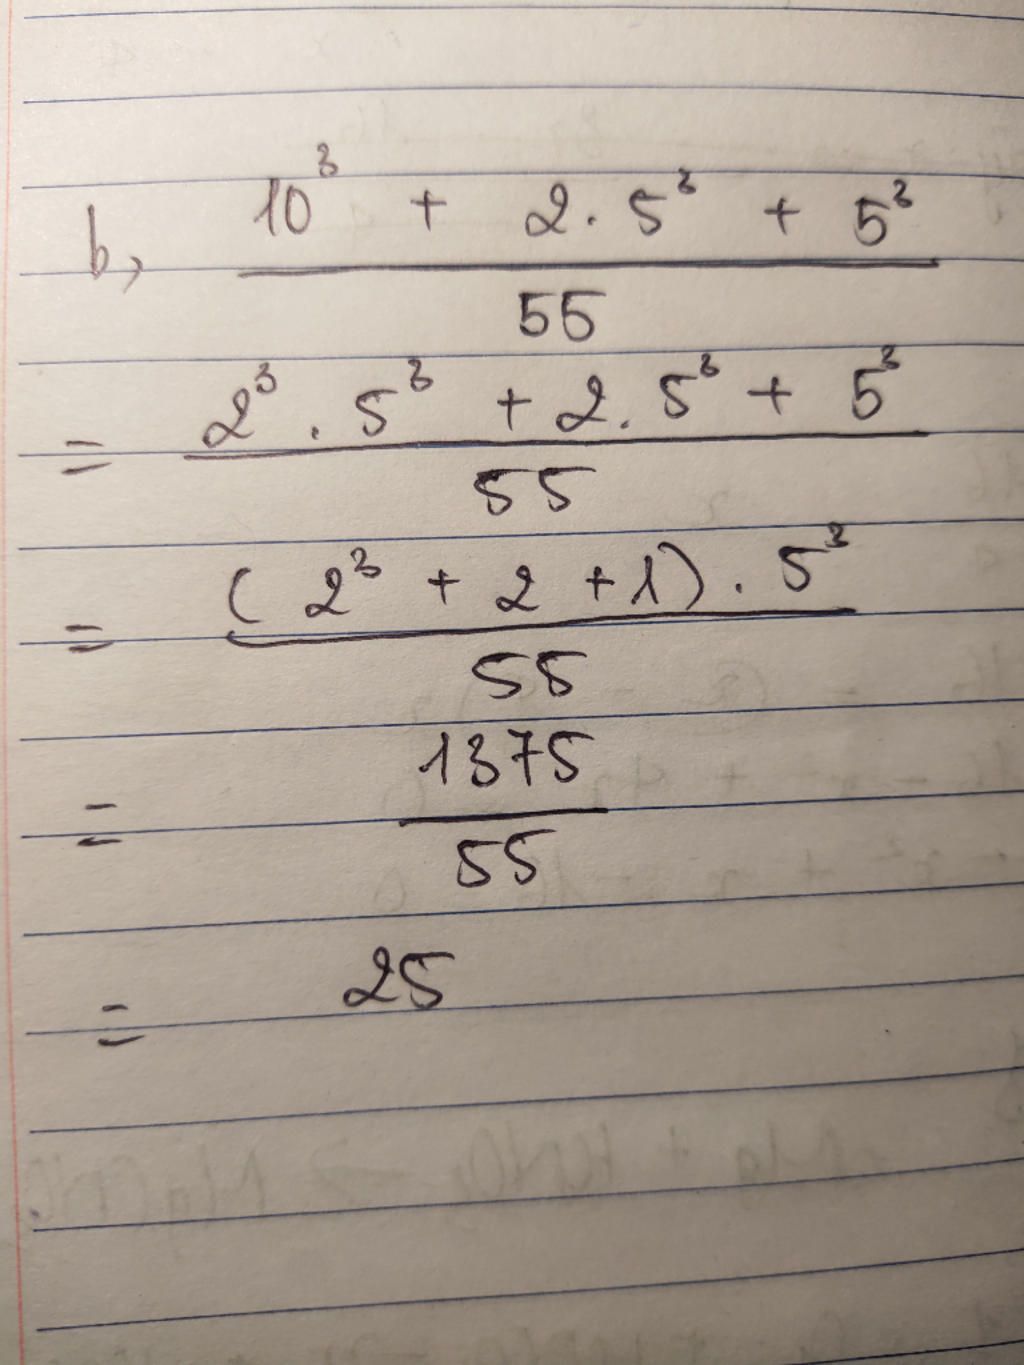 b, 10³ + 2 . 5³ + 5³
55
= 2³ . 5³ + 2 . 5³ + 5³
55
= ( 2³ + 2 + 1 ) . 5³
55
= 1375
55
= 25